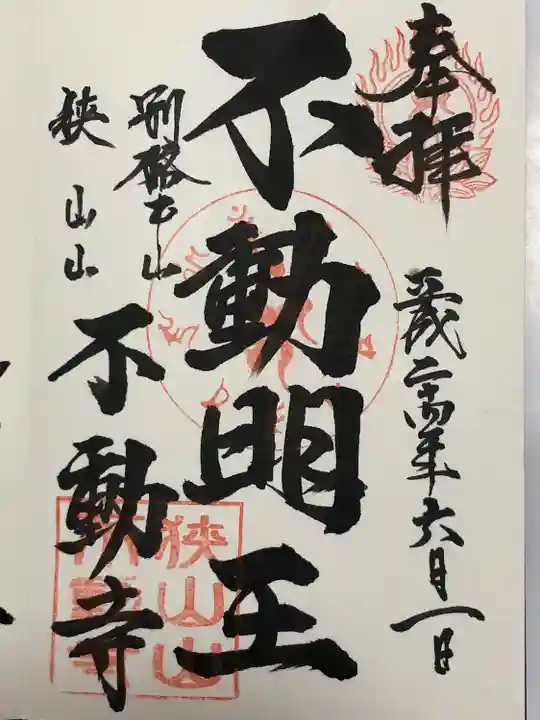 奉拝
平成二十四年六月一日
不動明王
別格本山
狭山山
不動寺
狭山山
不動寺